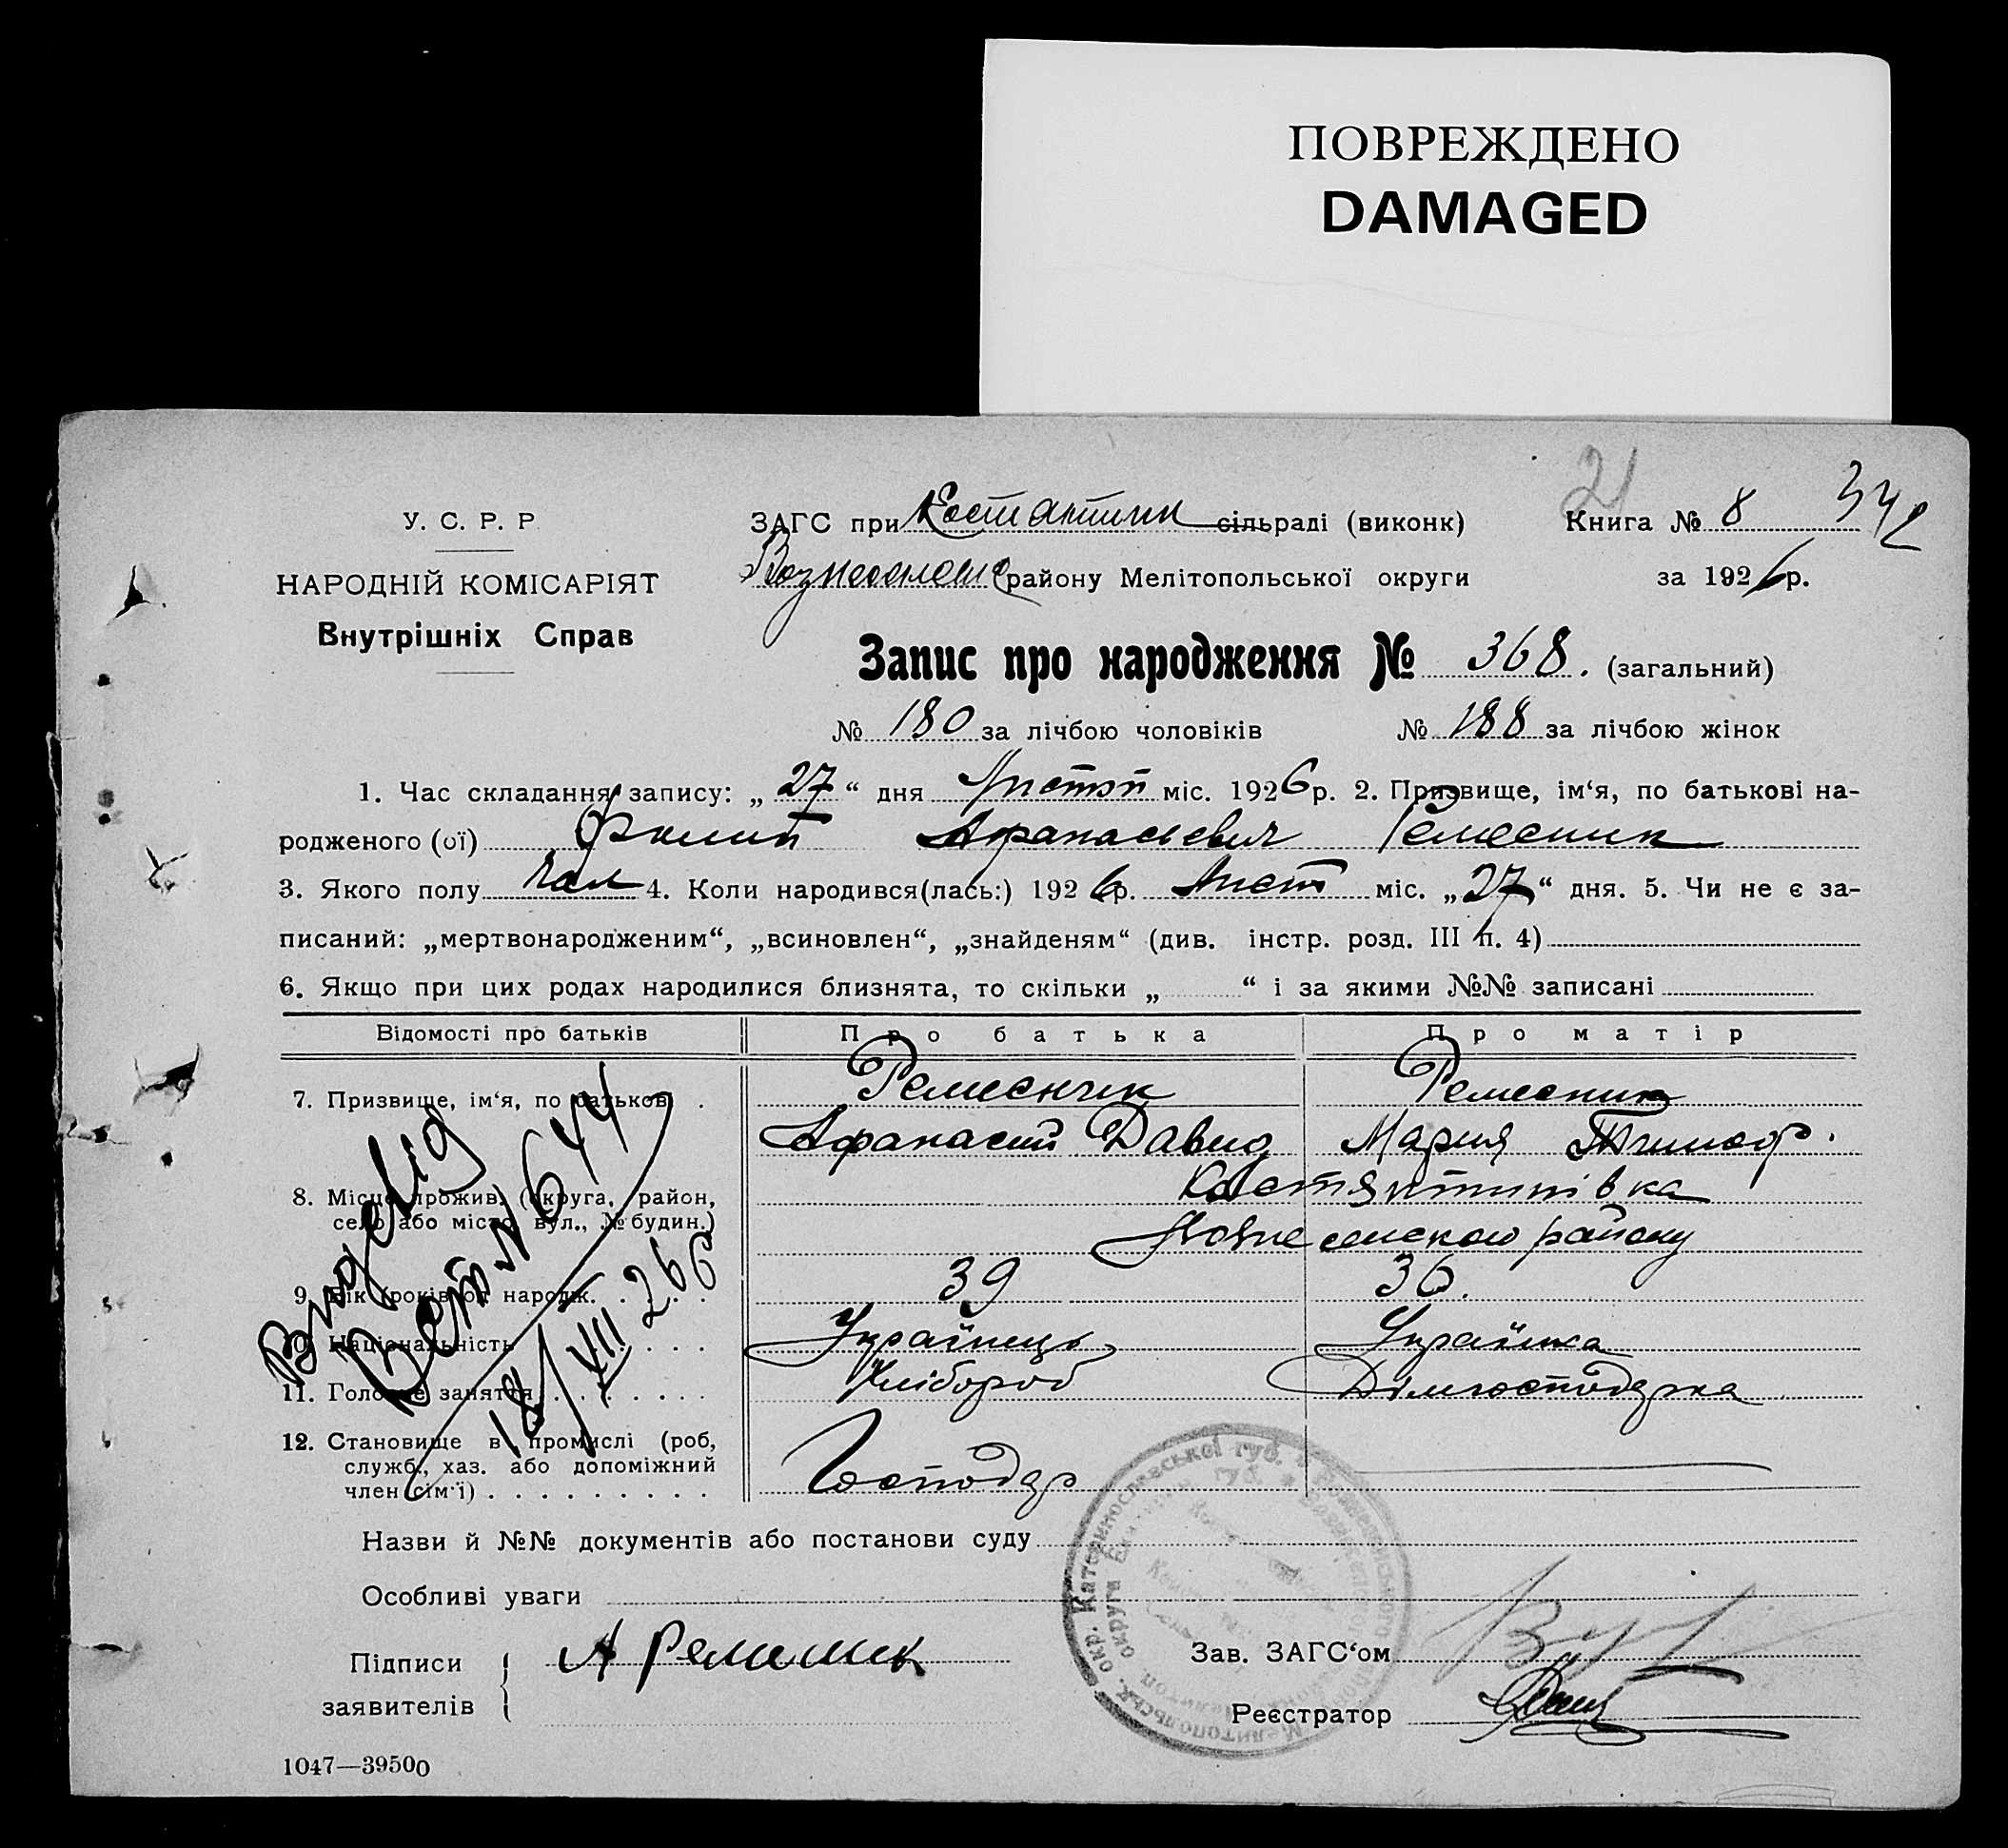 ПОВРЕЖДЕНО
DAMAGED
21
У. С. Р. Р.
ЗАГС при Костантин сільраді (виконк)
Книга № 8 342
НАРОДНІЙ КОМІСАРІЯТ
району Мелітопольської округи
за 1926 р.
Внутрішніх Справ
Запис про народження № 368. (загальний)
№ 180 за лічбою чоловіків № 188 за лічбою жінок
1. Час складання запису: „ 27 “ дня Листоп міс. 1926 р. 2. Призвище, ім‘я, по батькові на-
родженого (ої) Филип Афанасьевич Ремесник
3. Якого полу Чол 4. Коли народився(лась:) 1926 р. Лист міс. „ 27 “ дня. 5. Чи не є за-
писаний: „мертвонародженим“, „всиновлен“, „знайденям“ (див. інстр. розд. III п. 4)
6. Якщо при цих родах народилися близнята, то скільки „ “ і за якими №№ записані
Відомості про батьків Про батька Про матір
7. Призвище, ім‘я, по батькові . Ремесник Ремесник
Афанасий Давид Мария Тимоф.
8. Місце прожив. (округа, район, Костянтинівка
село або місто, вул., № будин.) району
9. Вік (років від народж. . . . . . 39 36.
10. Національність . . . . Українець Українка
11. Головне заняття . . . . . . . Хлібороб Домгосподарка
12. Становище в промислі (роб,
служб., хаз. або допоміжний
член сім‘ї) . . . . . . . . . Господар
Видавід
Вет № 644
18/XII 26 р
Назви й №№ документів або постанови суду
Особливі уваги
Підписи А Ремесник Зав. ЗАГС‘ом
заявителів Реєстратор
1047—39500